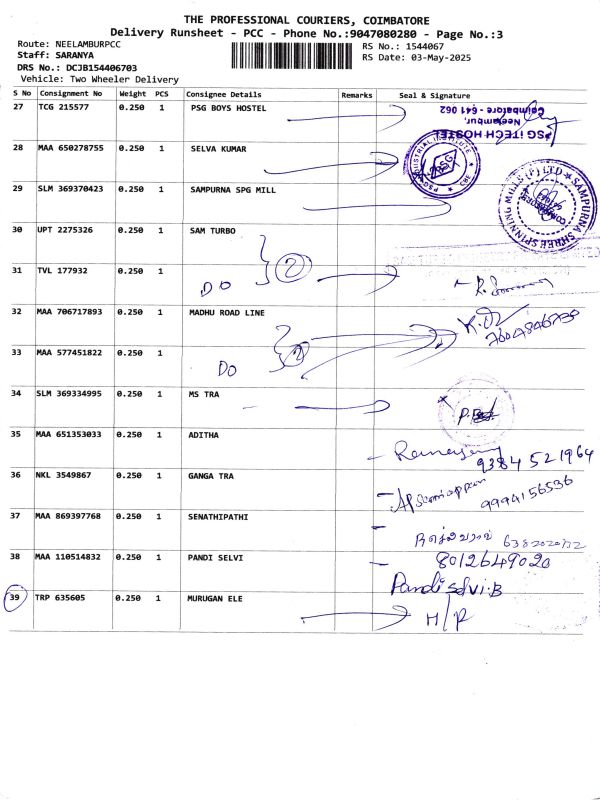 THE PROFESSIONAL COURIERS, COIMBATORE
Delivery Runsheet - PCC - Phone No.:9047080280 - Page No.:3
Route: NEELAMBURPCC
Staff: SARANYA
DRS No.: DCJB154406703
Vehicle: Two Wheeler Delivery
RS No.: 1544067
RS Date: 03-May-2025
S No Consignment No Weight PCS Consignee Details Remarks Seal & Signature
27 TCG 215577 0.250 1 PSG BOYS HOSTEL
PSG iTECH HOSTEL
Neelambur,
Coimbatore - 641 062
28 MAA 650278755 0.250 1 SELVA KUMAR
29 SLM 369370423 0.250 1 SAMPURNA SPG MILL
SAMPURNA SHREE SPINNING MILLS (P) LTD
30 UPT 2275326 0.250 1 SAM TURBO
2
31 TVL 177932 0.250 1
DO
32 MAA 706717893 0.250 1 MADHU ROAD LINE
2
33 MAA 577451822 0.250 1
DO
34 SLM 369334995 0.250 1 MS TRA
35 MAA 651353033 0.250 1 ADITHA
9384521964
36 NKL 3549867 0.250 1 GANGA TRA
9994156536
37 MAA 869397768 0.250 1 SENATHIPATHI
38 MAA 110514832 0.250 1 PANDI SELVI
8012649020
Pandi selvi.B
39 TRP 635605 0.250 1 MURUGAN ELE
H/R